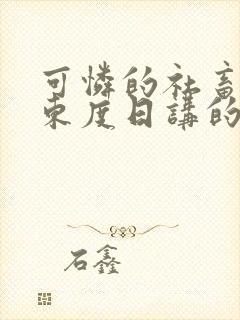 可憐的社畜
束度日講的
石鑫